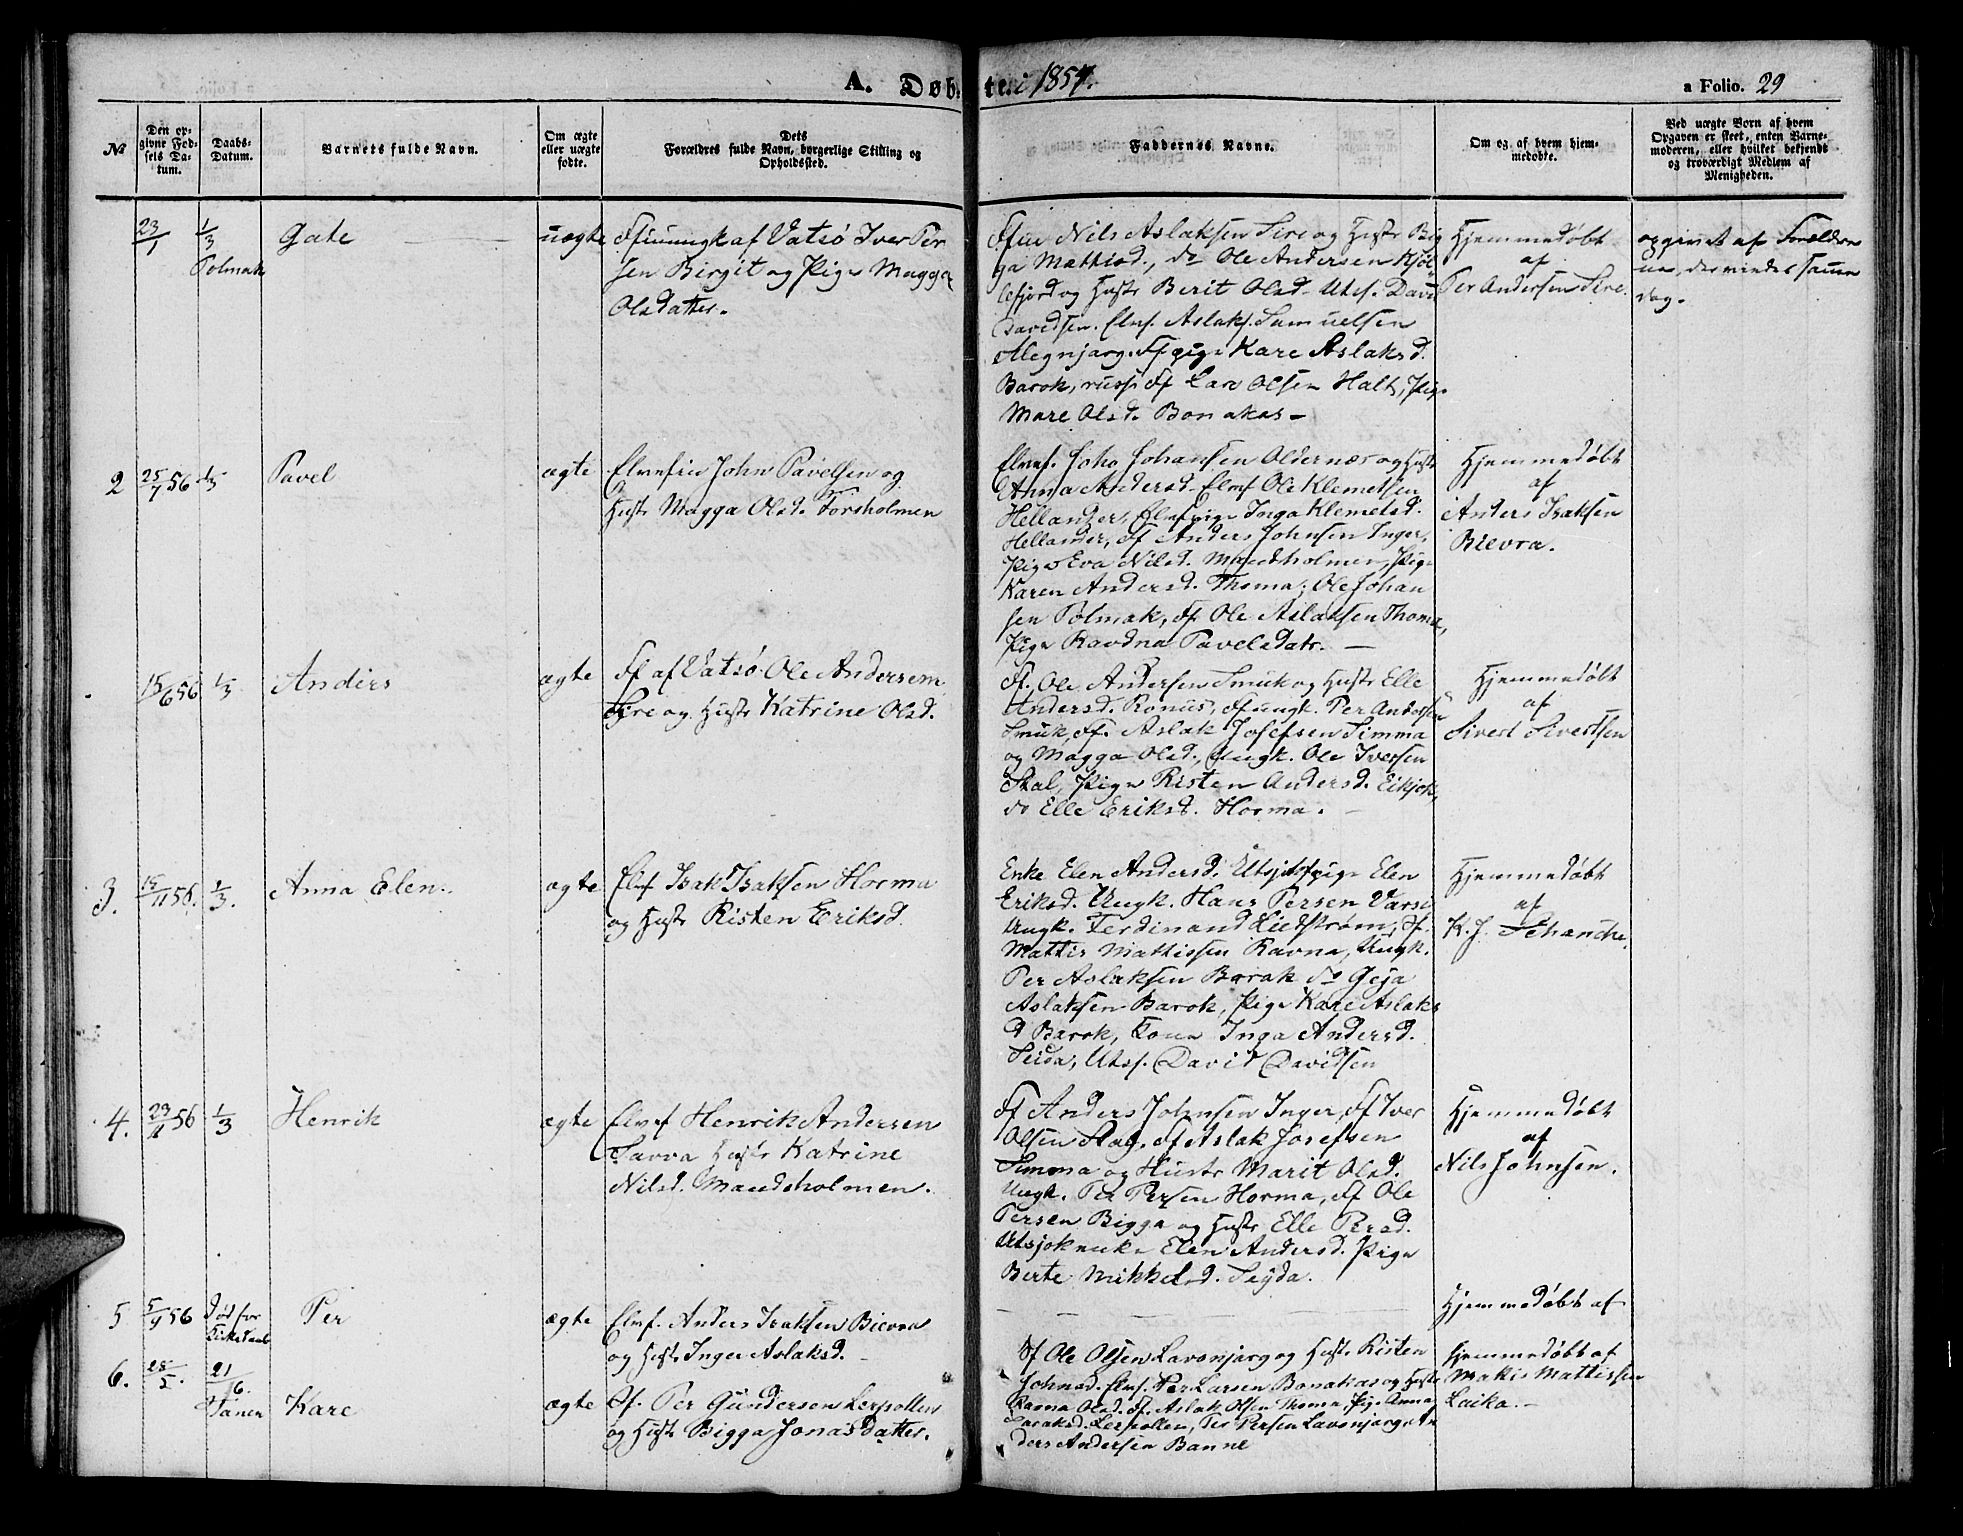 A. Døbte i 1857.
a Folio. 29
№
Den op-
givne Fød-
sels Da-
tum.
Daabs-
Datum.
Barnets fulde Navn.
Om ægte
eller uægte
fødte.
Dets
Forældres fulde Navn, borgerlige Stilling og
Opholdssted.
Faddernes Navne.
Om og af hvem hjem-
medøbte.
Ved uægte Born af hvem
Opgaven er skeet, enten Barne-
moderen, eller hvilket bekjendt
og troværdigt Medlem af
Menigheden.
23/1
1/3
Polmak
Gate
uægte
Fjnungk af Vatsø Iver Per
sen Birgit og Pige Magga
Olsdatter.
Nils Aslaksen Sire og Hustr Big
ga Mathisd., do Ole Andersen Kjöl-
lefjord og Hustr Berit Olsd. Utsj. David
Davidsen. Elvf. Aslak Samuelsen
Alegnjarg. Ff pige Kare Aslaksd.
Barok, russ. Ff Lare Olsen Halt, Pige
Mare Olsd. Bonakas –
Hjemmedøbt
af
Per Andersen Sire.
opgivet af Forældre
dag.
2
25/7 56
1/3
Pavel
ægte
Elvefin John Pavelsen og
Hustr Magga Olsd. Forsholmen
Elvef. John Johansen Oldernæs og Hustr
Anna Andersd. Elvf Ole Klemetsen
Hellander, Elvf pige Inga Klemetsd.
Hellander, Ff Anders Johnsen Inger,
Pige Eva Nilsd. Mandsholmen, Pige
Karen Andersd. Thoma, Ole Johan
sen Polmak, Ff Ole Aslaksen Thoma,
Pige Ravdna Pavelsdatr. –
Hjemmedøbt
af
Anders Isaksen
Bievra.
15/6 56
1/3
Anders
ægte
Ff af Vatsø Ole Andersen
Sire og Hustr Katrine Olsd.
Ff. Ole Andersen Smuk og Hustr Elle
Andersd. Ronus, Ff ungk. Per Andersen
Smuk, Ff. Aslak Josefsen Simma
og Magga Olsd., Ungk. Ole Iversen
Skal, Pige Risten Andersd. Eikjok,
do Elle Eriksd. Horma. –
Hjemmedøbt
af
Sivert Sivertsen
3.
15/11 56.
1/3.
Anna Elen.
ægte
Elvf Isak Isaksen Horma
og Hustr Risten Eriksd.
Enke Elen Andersd. Utsj. Ff pige Elen
Eriksd. Ungk. Hans Persen Varsi
Ungk. Ferdinand Liedstrøm, Ff.
Mattis Mattissen Ravna, Ungk.
Per Aslaksen Barok do Geja
Aslaksen Barok, Pige Kare Aslaks
d Barok, Kone Inga Andersd.
Seida, Utsj. David Davidsen
Hjemmedøbt
af
K. J. Schanche.
4.
29/11 56
1/3
Henrik
ægte
Elvef Henrik Andersen
Savva Hustr Katrine
Nilsd. Mandsholmen.
Ff Anders Johnsen Inger, Ff Iver
Olsen Skag, Ff Aslak Josefsen
Simma og Hustr Marit Olsd.
Ungk. Per Persen Horma, Ff Ole
Persen Bigga og Hustr Elle Persd.
Utsjok enke Elen Andersd. Pige
Berte Mikkelsd. Seyda.
Hjemmedøbt
af
Nils Johnsen.
5
5/9 56
død før
Kirkedaab
Per
ægte
Elvf. Anders Isaksen Bievra
og Hustr Inger Aslaksd.
Hjemmedøbt af
6.
28/2.
21/6.
Tanen
Kare
ægte
Sf. Per Gundersen Lerpollen
og Hustr Bigga Jonas Datter.
Sf Ole Olsen Lavonjarg og Hustr Risten
Johnsd. Elvf. Per Larsen Bonakas og Hustr
Ravna Olsd. Ff. Aslak Olsen Thoma, Pige Anna
Isaksd. Lerpollen, Per Persen Lavonjarg, An
ders Andersen Banne
Hjemmedøbt af
Makis Mattissen
Laika. –